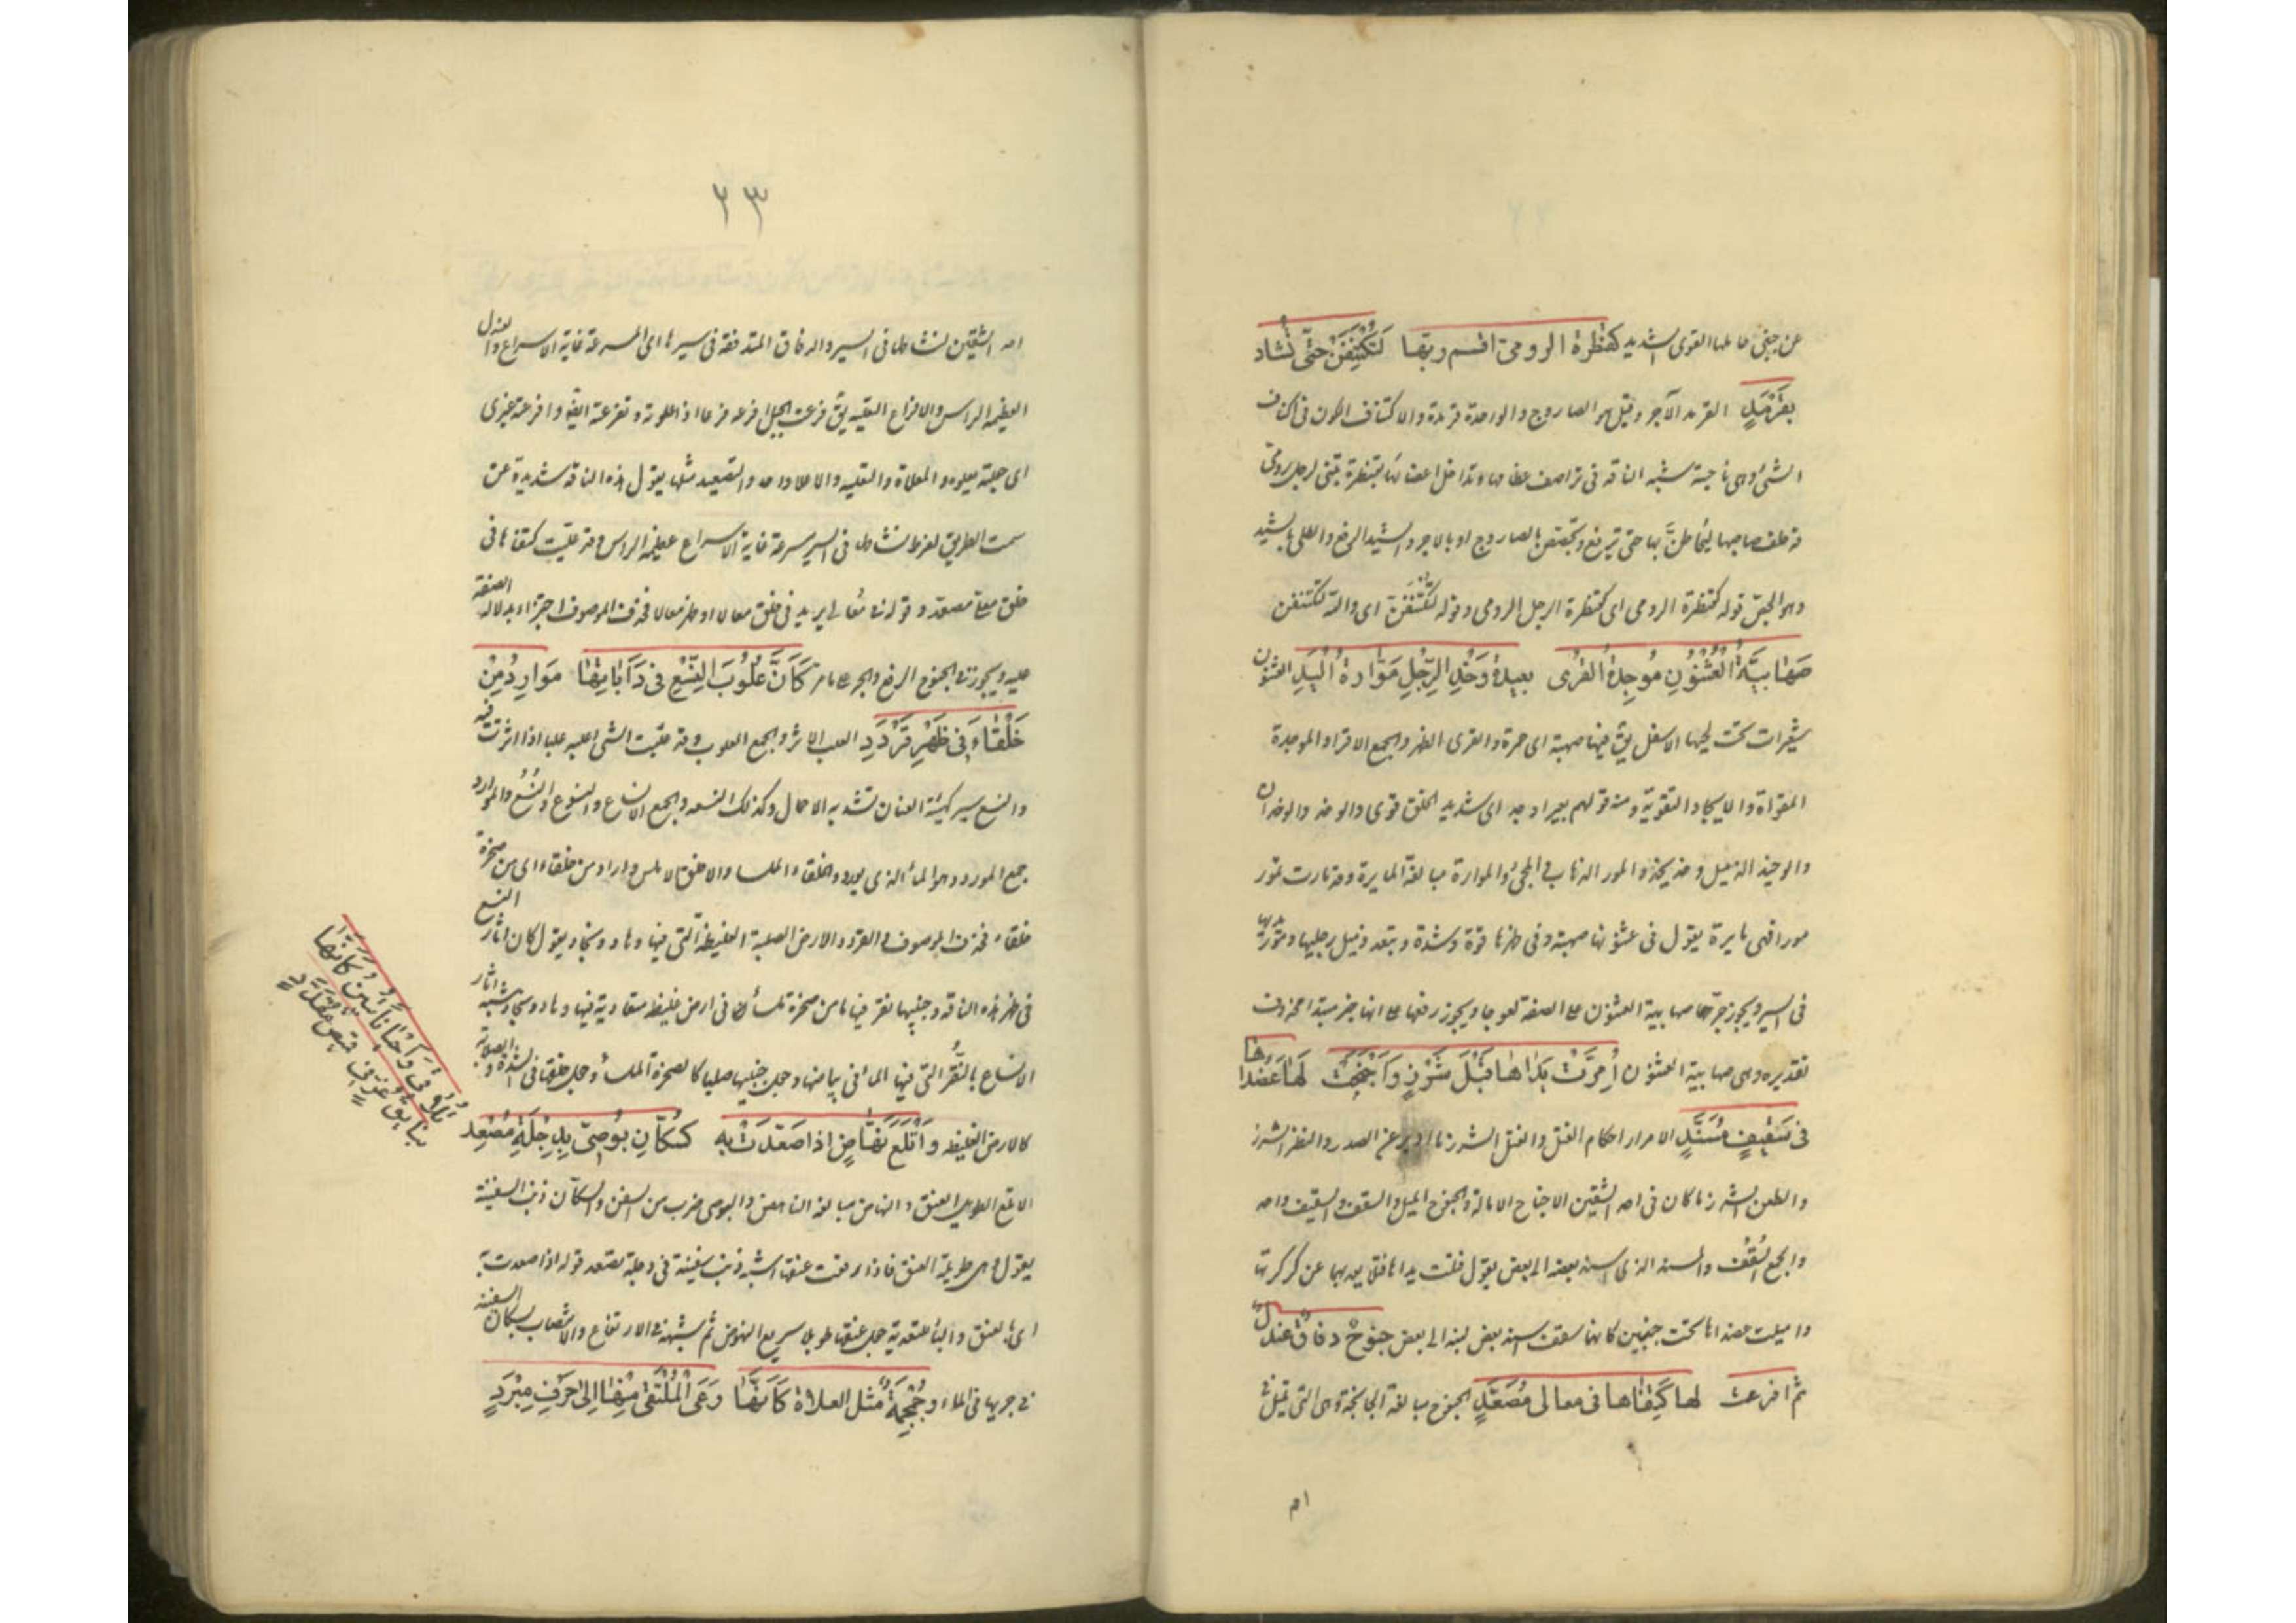 عن جنبى حاملها القوى الشديد كقنطرة الرومى اقسم ربها لتكتنفن حتى تشاد
بقرمد القرمد الآجر وقيل هو الصاروج والواحدة قرمدة والاكتناف الكون فى اكناف
الشئ وهى ناحيته شبه الناقة فى تراصف عظامها وتداخل اعضائها بقنطرة تبنى لرجل رومى
قد حلف صاحبها ليحاطن بها حتى ترفع وتجصص بالصاروج او بالاجر والشيد الرفع والطلى بالشيد
وهو الجص قوله كقنطرة الرومى اى كقنطرة الرجل الرومى وقوله لتكتنفن اى والله لتكتنفن
صهابية العثنون موجدة القرى بعيدة وخد الرجل موارة اليد العثنون
شعرات تحت لحيها الاسفل يق فيها صهبة اى حمرة والقرى الظهر والجمع الاقراء والموجدة
المقواة والايجاد التقوية ومنه قولهم بعير اوجد اى شديد الخلق قوى والوخد والوخدان
والوخيذ الذميل وخد يخذ والمور الذهاب والمجئ والموارة مبالغة المايرة وقد مارت تمور
مورا فهى مايرة يقول فى عثنونها صهبة وفى ظهرها قوة وشدة ويبعد ذميل رجليها ومور يديها
فى السير ويجوز جر صهابية العثنون على الصفة لعوجاء ويجوز رفعها على انها خبر مبتدا محذوف
تقديره وهى صهابية العثنون امرت يداها فتل شزر واجنحت لها عضداها
فى سقيف مسند الامرار احكام الفتل والفتل الشزر ما ادبر عن الصدر والنظر الشزر
والطعن الشزر ما كان فى احد الشقين الاجناح الامالة والجنوح الميل والسقف والسقيف واحد
والجمع السقف والمسند الذى اسند بعضه الى بعض يقول فتلت يداها فتل بعد بها عن كركرتها
واميلت عضداها تحت جنبين كانهما سقف اسند بعض لبنه الى بعض جنوح دفاق عندل
ثم افرعت لها كتفاها فى معالى مصعد الجنوح مبالغة الجانحة وهى التى تميل فى
احد الشقين لنشاطها فى السير والدفاق المتدفقة فى سيرها اى المسرعة غاية الاسراع والعندل
العظيمة الراس والافراع التعلية يق فرعت الجبل افرعه فرعا اذا علوته وتفرعته ايضا وافرعته غيرى
اى جعلته يعلوه والمعالاة والتعلية والاعلاء واحد والتصعيد مثلها يقول هذه الناقة شديدة عن
سمت الطريق لفرط نشاطها فى السير مسرعة غاية الاسراع عظيمة الراس وقد عليت كتفاها فى
خلق معلى مصعد وقوله فى معالى يريد فى خلق معالا او ظهر معالا فحذف الموصوف اجتزاء بدلالة الصفة
عليه ويجوز فى الجنوح الرفع والجر على ما مر كأن علوب النسع فى دأياتها موارد من
خلقاء فى ظهر قردد العلب الاثر والجمع العلوب وقد علبت الشئ اعلبه علبا اذا اثرت فيه
والنسع سير كهيئة العنان تشد به الاحمال وكذلك النسعة والجمع الانساع والنسوع والنسع والموارد
جمع المورد وهو الماء الذى يورد والخلقاء الملساء والاخلق الاملس واراد من خلقاء اى من صخرة
خلقاء فحذف الموصوف والقردد الارض الصلبة الغليظة التى فيها وهاد ونجاد يقول كان اثار النسع
فى ظهر هذه الناقة وجنبيها نقر فيها ماء من صخرة ملساء فى ارض غليظة متعادية فيها وهاد ونجاد شبه اثار
الانساع بالنقر التى فيها الماء فى بياضها وجعل جنبيها صلبا كالصخرة الملساء وجعل خلقها فى الشدة والصلابة
كالارض الغليظة واتلع نهاض اذا صعدت به كسكان بوصى بدجلة مصعد
الاتلع الطويل العنق والنهاض مبالغة الناهض والبوصى ضرب من السفن والسكان ذنب السفينة
يقول هى طويلة العنق فاذا رفعت عنقها اشبه ذنب سفينة فى دجلة تصعد قوله اذا صعدت به
اى بالعنق والباء للتعدية جعل عنقها طويلا سريع النهوض ثم شبهه فى الارتفاع والانتصاب بسكان السفينة
فى جريها فى الماء وجمجمة مثل العلاة كانما وعى الملتقى منها الى حرف مبرد
تلاقى واحيانا تبين كانها
بنائق غر فى قميص مقدد
٢٣